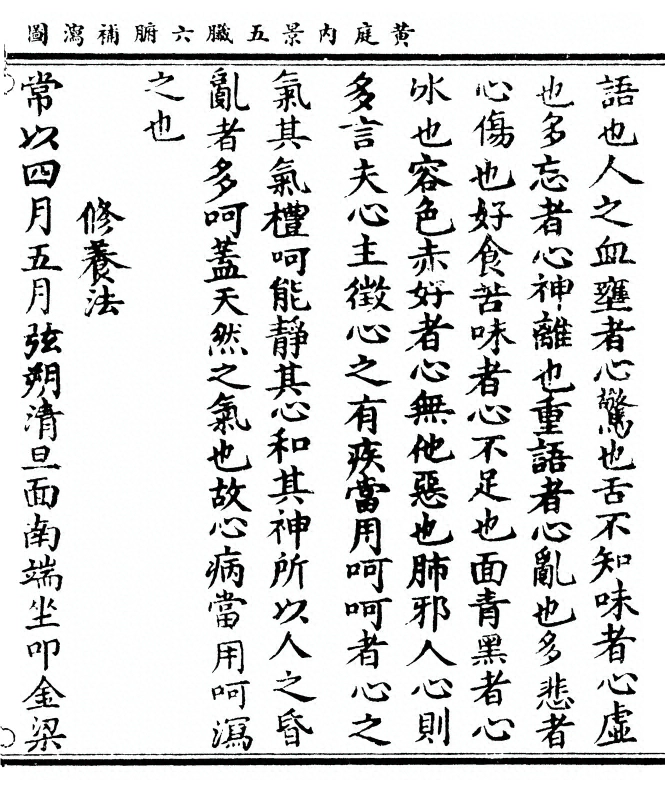 黄庭内景五臟六腑補瀉圖
語也人之血壅者心驚也舌不知味者心虛
也多忘者心神離也重語者心亂也多悲者
心傷也好食苦味者心不足也面青黑者心
冰也容色赤好者心無他惡也肺邪人心則
多言夫心主徵心之有疾當用呵呵者心之
氣其氣禮呵能靜其心和其神所以人之昏
亂者多呵蓋天然之氣也故心病當用呵瀉
之也
修養法
常以四月五月弦朔清旦面南端坐叩金梁